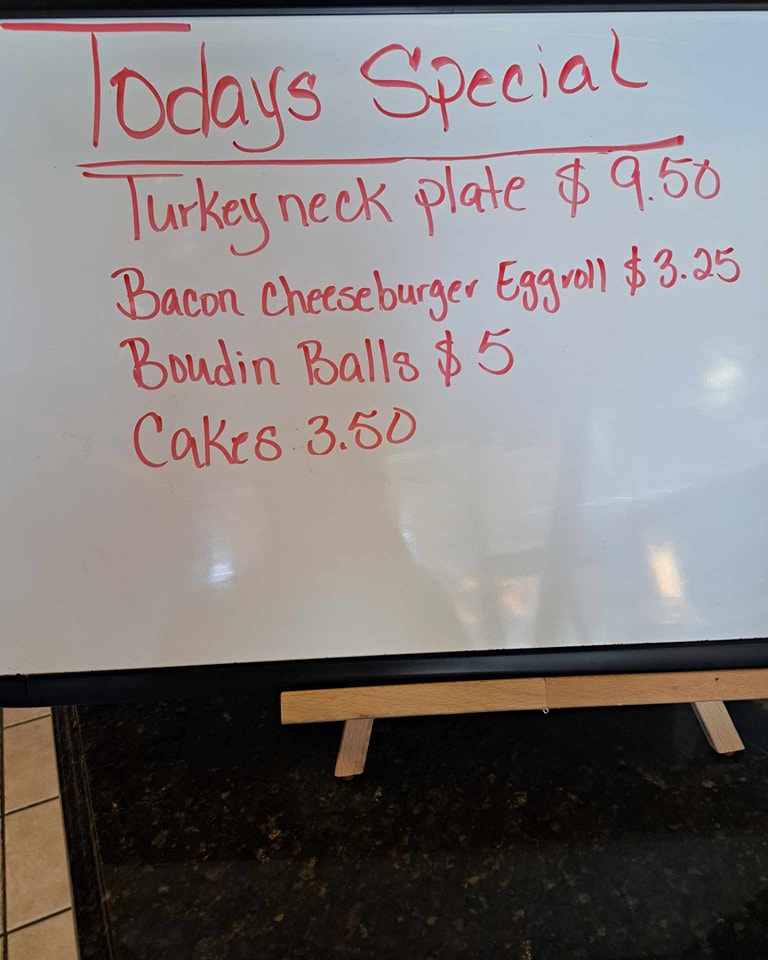 Todays Special
Turkey neck plate $ 9.50
Bacon Cheeseburger Eggroll $3.25
Boudin Balls $5
Cakes 3.50